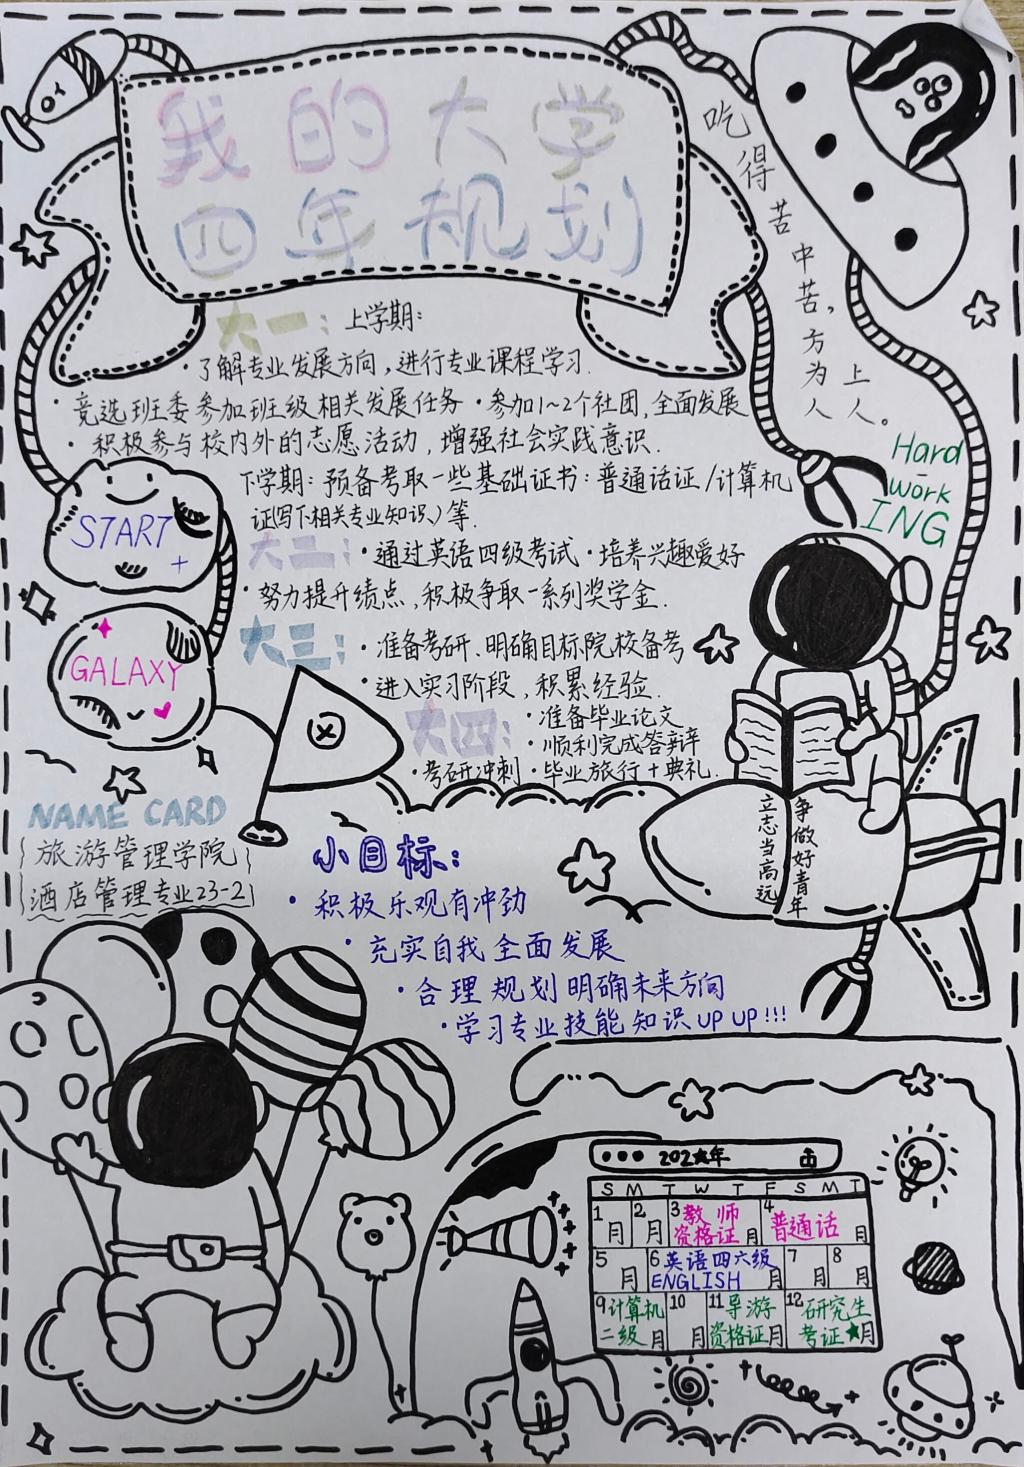 我的大学
四年规划
吃得苦中苦，
方为人上人。
Hard
-
Work
ING
大一：上学期：
·了解专业发展方向，进行专业课程学习.
·竞选班委参加班级相关发展任务·参加1~2个社团,全面发展
·积极参与校内外的志愿活动，增强社会实践意识.
下学期：预备考取一些基础证书：普通话证/计算机
证(写下相关专业知识、)等.
大二：·通过英语四级考试·培养兴趣爱好
·努力提升绩点，积极争取一系列奖学金.
大三：·准备考研、明确目标院校备考
·进入实习阶段，积累经验.
大四：·准备毕业论文
·顺利完成答辩
·考研冲刺·毕业旅行+典礼.
START
GALAXY
NAME CARD
旅游管理学院
酒店管理专业23-2
立志当高远
争做好青年
小目标：
·积极乐观有冲劲
·充实自我全面发展
·合理规划明确未来方向
·学习专业技能知识UP UP!!!
202★年
S M T W T F S M T
1月 2月 3教师资格证月 4普通话月
5月 6英语四六级ENGLISH月 7月 8月
9计算机二级月 10月 11导游资格证月 12研究生考证★月